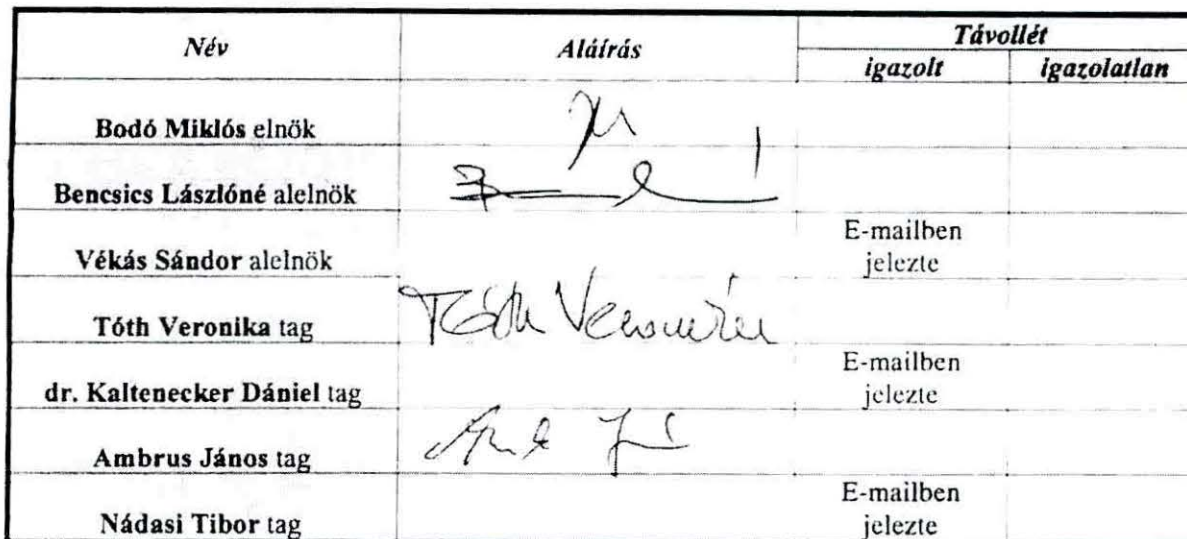 Név Aláírás Távollét
igazolt igazolatlan
Bodó Miklós elnök
Bencsics Lászlóné alelnök
Végás Sándor alelnök E-mailben
jelezte
Tóth Veronika tag Tóth Veronika
dr. Kaltenecker Dániel tag E-mailben
jelezte
Ambrus János tag
Nádasi Tibor tag E-mailben
jelezte